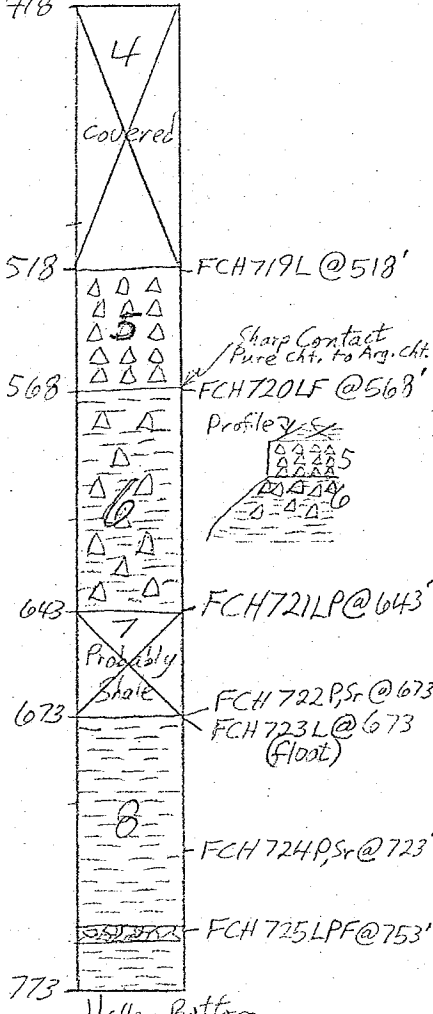 4
Covered
518
FCH 719L @ 518'
5
Sharp Contact
Pure cht. to Arg. cht.
568
FCH 720LF @ 568'
Profile
5
6
6
643
FCH 721LP @ 643'
7
Probably
Shale
673
FCH 722P,Sr @ 673
FCH 723L @ 673
(float)
8
FCH 724P,Sr @ 723'
FCH 725LPF @ 753'
773
Bottom